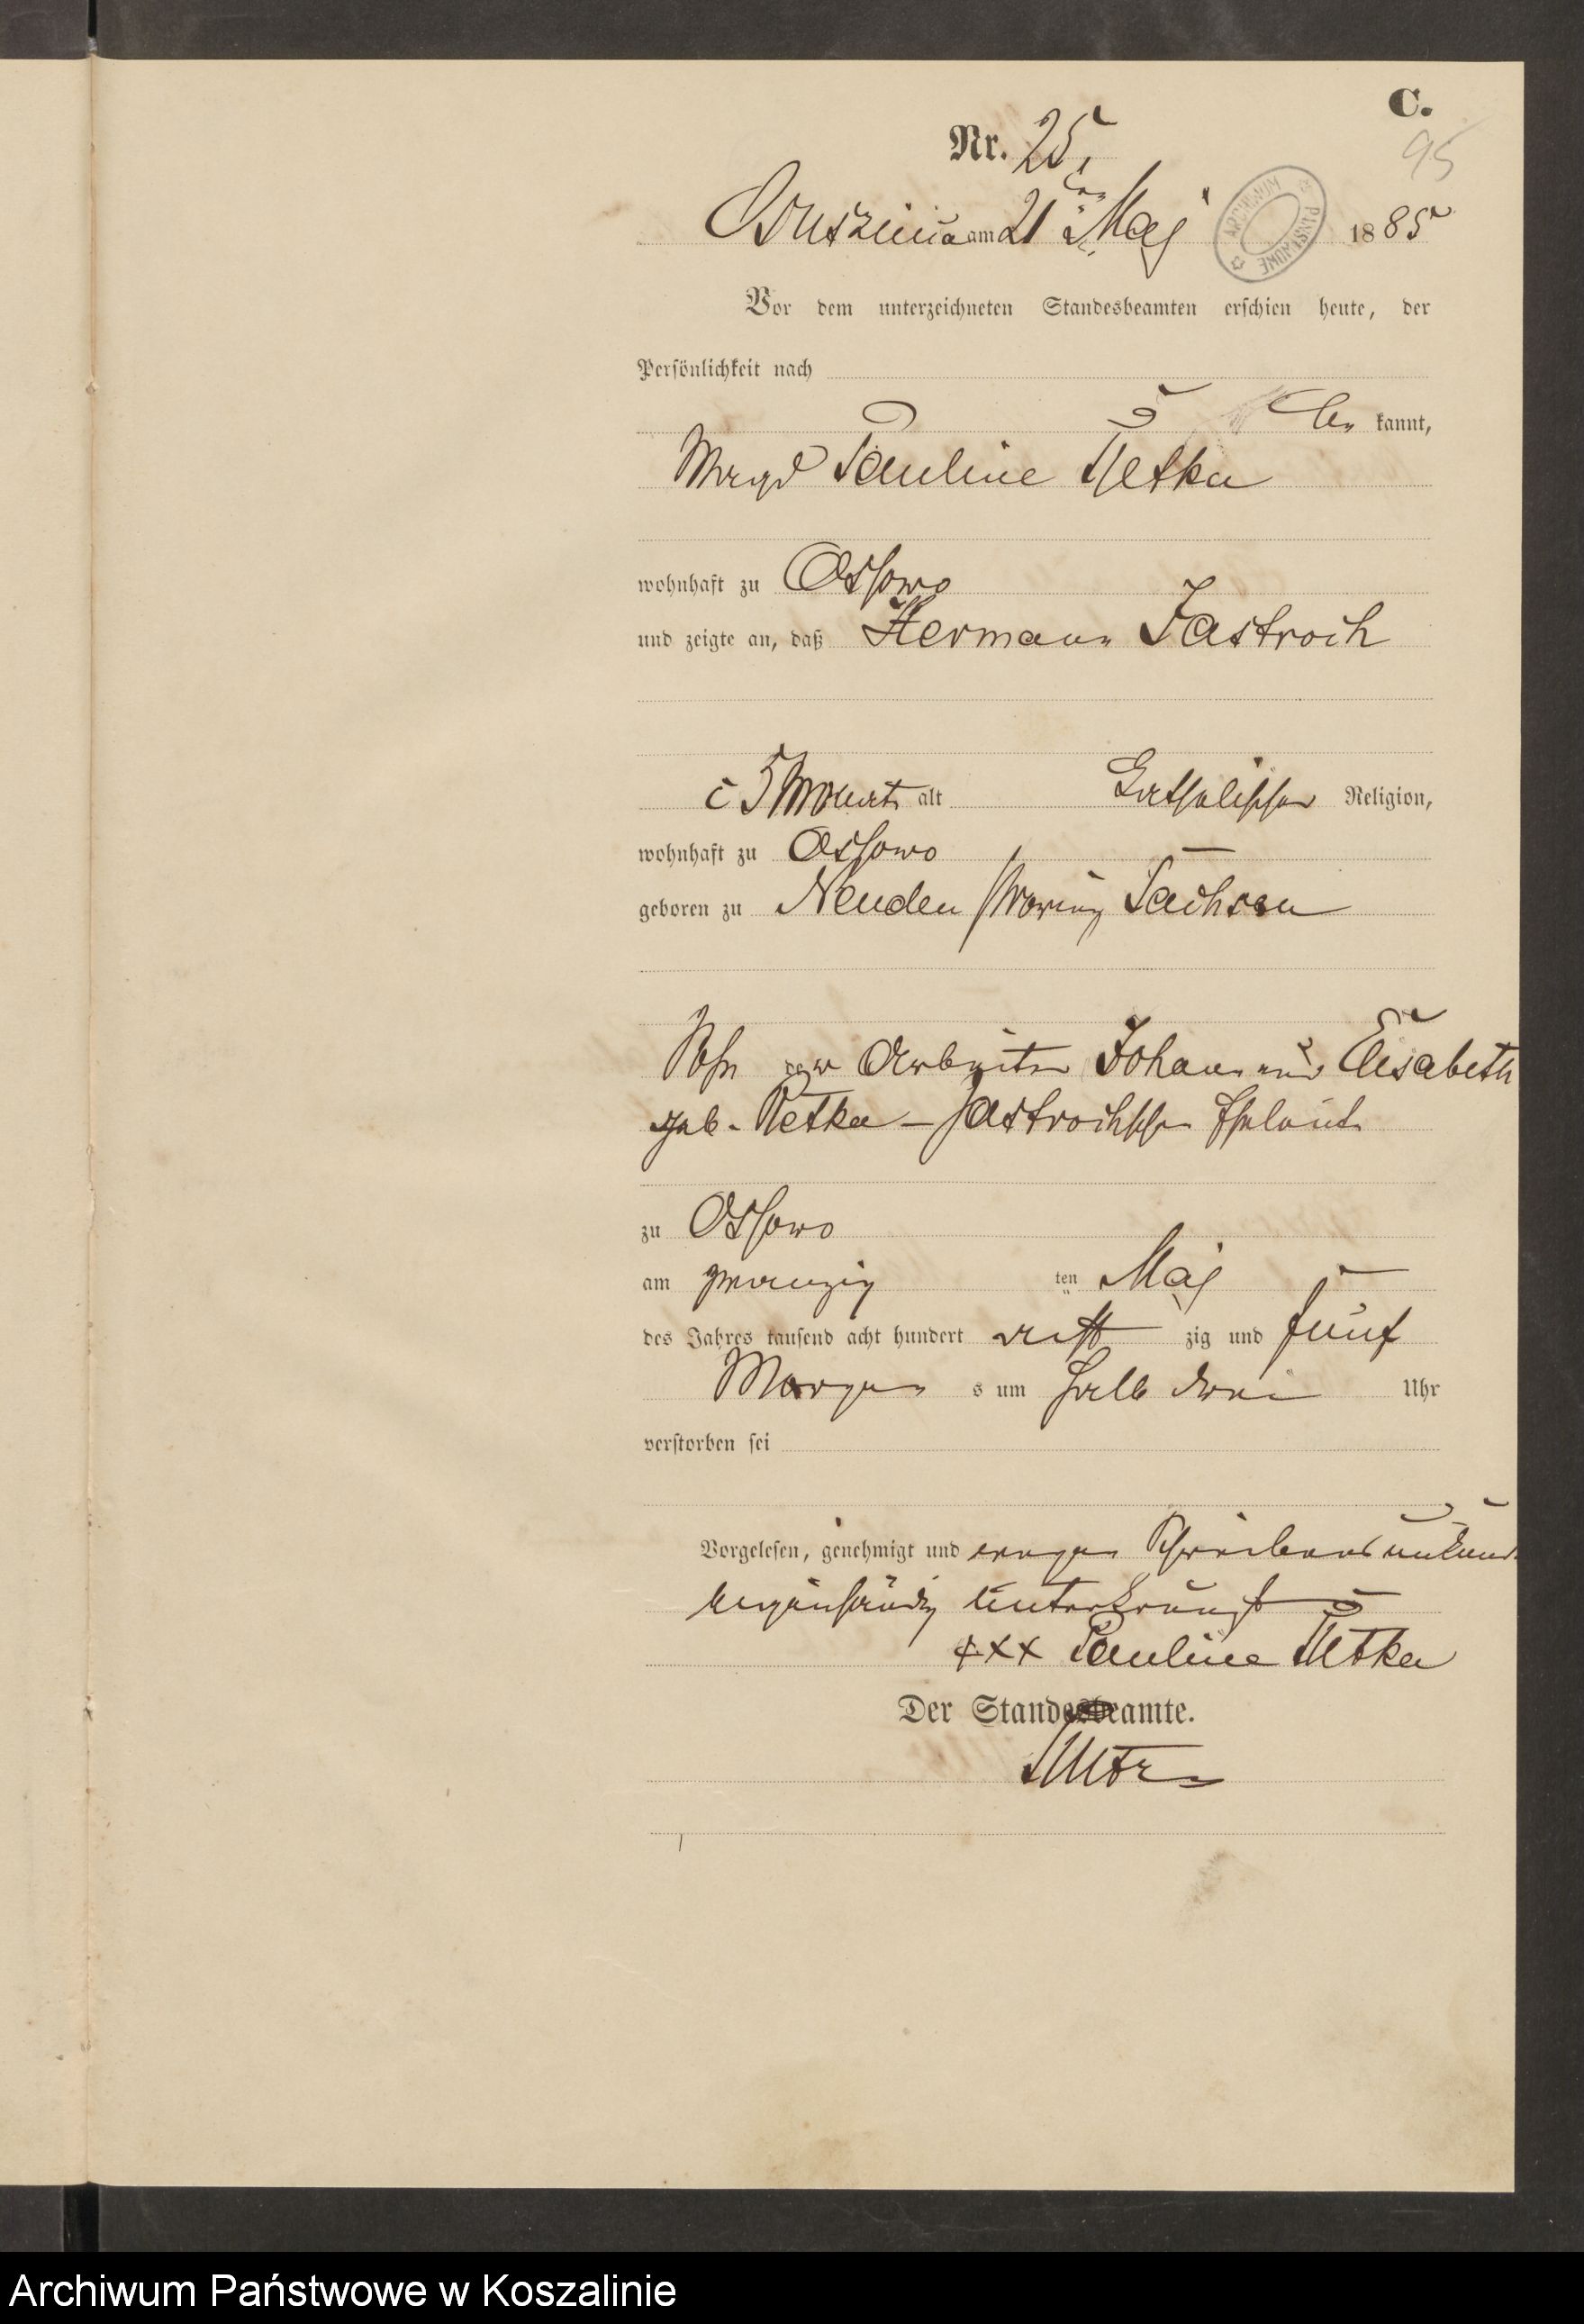 C.
95
Nr. 25.
am 21ten Maj 1885
ARCHIWUM PAŃSTWOWE
Vor dem unterzeichneten Standesbeamten erschien heute, der
Persönlichkeit nach
be kannt,
Magd Pauline Petka
wohnhaft zu Ossowo
und zeigte an, daß Hermann Jastroch
5 Monat alt katholischer Religion,
wohnhaft zu Ossowo
geboren zu Neuden Provinz Sachsen
Sohn der Arbeiter Johann und Elisabeth
geb. Petka - Jastrochschen Eheleute
zu Ossowo
am zwanzig ten Maj
des Jahres tausend acht hundert acht zig und fünf
Morgen s um halb drei Uhr
verstorben sei
Vorgelesen, genehmigt und wegen Schreibens unkunde
eigenhändig unterkreuzt
+xx Pauline Petka
Der Standesbeamte.
Archiwum Państwowe w Koszalinie